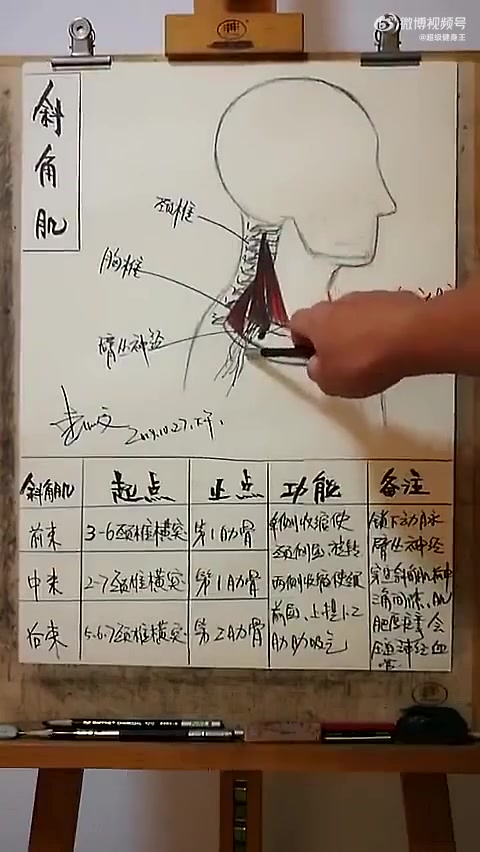 微博视频号
@超级健身王
斜角肌
颈椎
胸椎
臂丛神经
2019.10.27.下午.
斜角肌 起点 止点 功能 备注
前束 3-6颈椎横突 第1肋骨
中束 2-7颈椎横突 第1肋骨
后束 5.6.7颈椎横突 第2肋骨
单侧收缩使
颈侧屈旋转
两侧收缩使颈
前屈、上提1.2
肋助吸气
锁下动脉
臂丛神经
穿过斜角肌前中
三角间隙、肌
肥厚痉挛会
压迫神经血
管